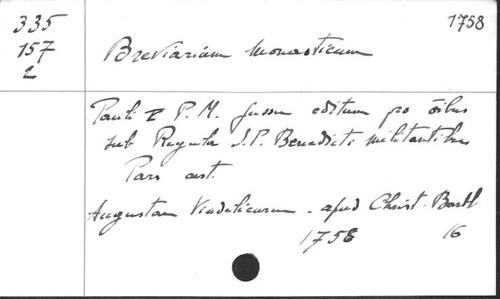 335
157
2
1758
Breviarium Monasticum
Pauli V P. M. jussu editum pro õibus
sub Regula S. P. Benedicti militantibus
Pars aest.
Augustae Vindelicorum - apud Christ. Bartl
1758 16